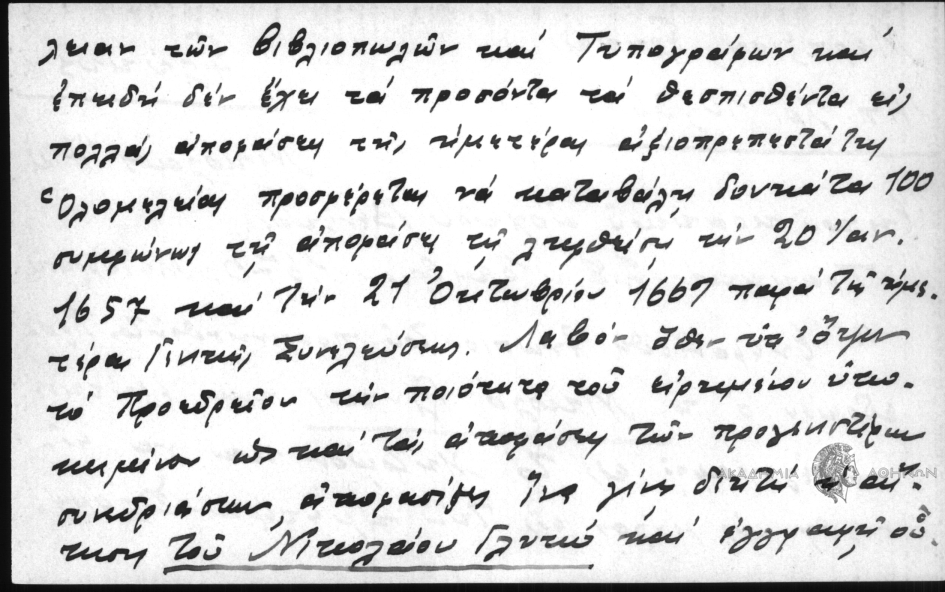 λειαν τῶν βιβλιοπωλῶν καί Τυπογράφων καί
ἐπειδή δέν ἔχει τά προσόντα τά θεσπισθέντα εἰς
πολλάς ἀποφάσεις τῆς ἡμετέρας ἀξιοπρεπεστάτης
Ὁλομελείας προσφέρεται νά καταβάλῃ δουκάτα 100
συμφώνως τῇ ἀποφάσει τῇ ληφθείσῃ τήν 20 Ἰαν.
1657 καί τήν 21 Ὀκτωβρίου 1667 παρά τῆς ἡμε-
τέρας Γενικῆς Συνελεύσεως. Λαβόν ὅθεν ὑπ' ὄψιν
τό Προεδρεῖον τήν ποιότητα τοῦ εἰρημένου ὑπο-
κειμένου ὡς καί τάς ἀποφάσεις τῶν προγενεστέρων
συνεδριάσεων, ἀποφασίζει ἵνα γίνῃ δεκτή ἡ αἴ-
τησις τοῦ Νικολάου Γλυκύ καί ἐγγραφῇ οὗ-
ΑΚΑΔΗΜΙΑ ΑΘΗΝΩΝ